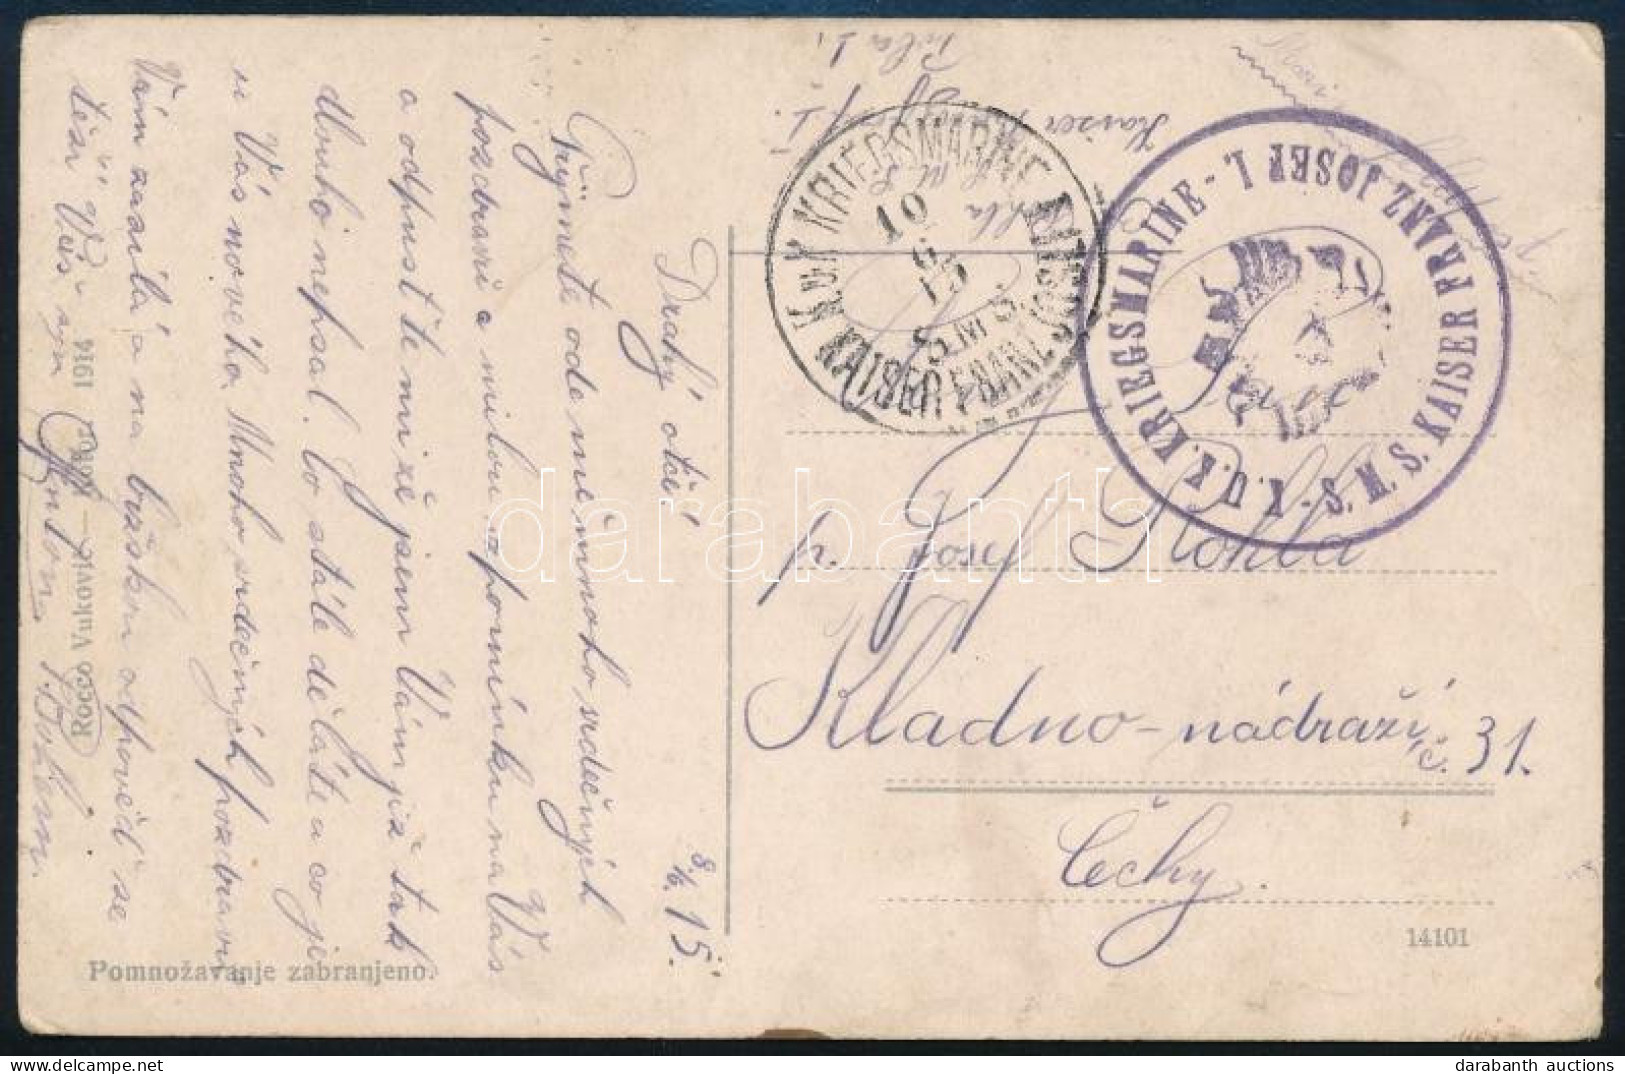 Drahý otče! 8./6. 15.
Přijmete ode mne mnoho srdečných
pozdravů a milou vzpomínku na Vás
a odpusťte mi že jsem Vám již tak
dlouho nepsal. Co stále děláte a co je
u Vás nového. Mnoho srdečných pozdravů
Vám zasílá a na brzskou odpověď se
těší Váš syn Antonín
K.u.K. KRIEGSMARINE
10
6
15
S.M.S.
KAISER FRANZ JOSEF I.
K.U.K. KRIEGSMARINE - S.M.S. KAISER FRANZ JOSEF I.
Kaiser
p. Josef
Kladno-nádraží
č. 31.
Čechy.
Rocco Vuković — 1914
Pomnožavanje zabranjeno.
14101
darabanth
darabanth auctions